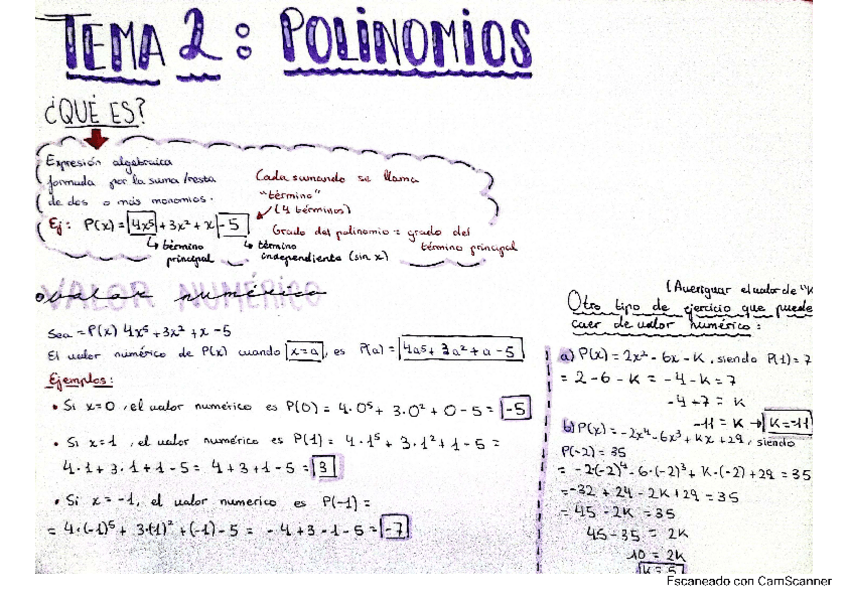 TEMA 2: POLINOMIOS
¿QUÉ ES?
Expresión algebraica
formada por la suma/resta
de dos o más monomios.
Ej: P(x) = 4x⁵ + 3x² + x - 5
↳ término
principal
↳ término
independiente (sin x)
Cada sumando se llama
"término"
(4 términos)
Grado del polinomio = grado del
término principal
VALOR NUMÉRICO
valor numérico
Sea = P(x) 4x⁵ + 3x² + x - 5
El valor numérico de P(x) cuando x=a, es P(a) = 4a⁵ + 3a² + a - 5
Ejemplos:
• Si x=0, el valor numérico es P(0) = 4·0⁵ + 3·0² + 0 - 5 = -5
• Si x=1, el valor numérico es P(1) = 4·1⁵ + 3·1² + 1 - 5 =
4·1 + 3·1 + 1 - 5 = 4 + 3 + 1 - 5 = 3
• Si x = -1, el valor numerico es P(-1) =
= 4·(-1)⁵ + 3·(-1)² + (-1) - 5 = -4 + 3 - 1 - 5 = -7
(Averiguar el valor de "K
Otro tipo de ejercicio que puede
caer de valor numérico:
a) P(x) = 2x² - 6x - K, siendo P(1) = 7
= 2 - 6 - K = -4 - K = 7
-4 + 7 = K
-11 = K → K = -11
b) P(x) = -2x⁴ - 6x³ + Kx + 29, siendo
P(-2) = 35
= -2(-2)⁴ - 6·(-2)³ + K·(-2) + 29 = 35
= -32 + 24 - 2K + 29 = 35
= 45 - 2K = 35
45 - 35 = 2K
10 = 2K
K = 5
Escaneado con CamScanner